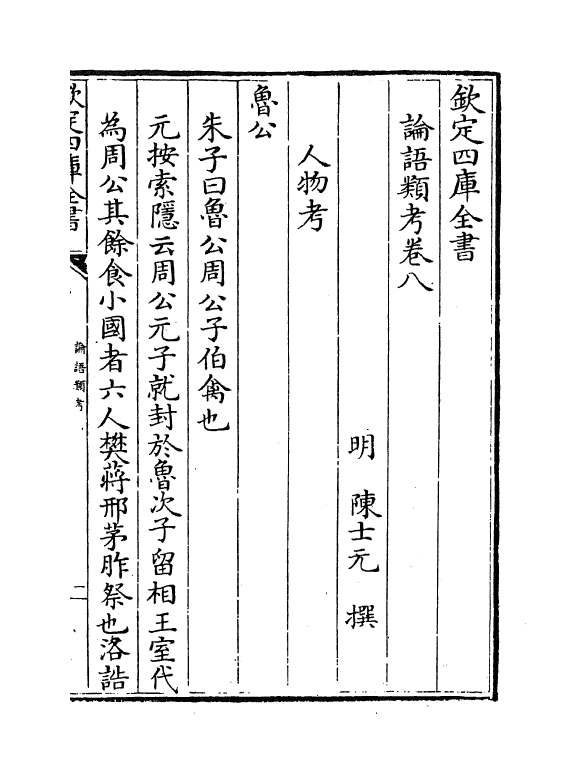 欽定四庫全書
論語類考卷八
明　陳士元　撰
人物考
魯公
朱子曰魯公周公子伯禽也
元按索隱云周公元子就封於魯次子留相王室代
為周公其餘食小國者六人樊蔣邢茅胙祭也洛誥
欽定四庫全書
論語類考
二